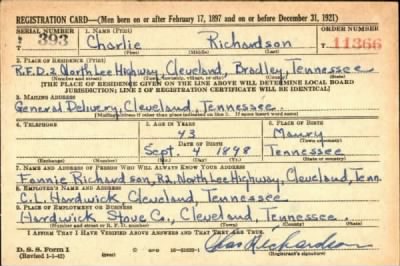 REGISTRATION CARD—(Men born on or after February 17, 1897 and on or before December 31, 1921)
SERIAL NUMBER 1. NAME (Print) ORDER NUMBER
393 Charlie Richardson T. 11366
(First) (Middle) (Last)
2. PLACE OF RESIDENCE (Print)
R.F.D. 2 North Lee Highway, Cleveland, Bradley, Tennessee
(Number and street) (Town, township, village, or city) (County) (State)
[THE PLACE OF RESIDENCE GIVEN ON THE LINE ABOVE WILL DETERMINE LOCAL BOARD
JURISDICTION; LINE 2 OF REGISTRATION CERTIFICATE WILL BE IDENTICAL]
3. MAILING ADDRESS
General Delivery, Cleveland, Tennessee
[Mailing address if other than place indicated on line 2. If same insert word same]
4. TELEPHONE 5. AGE IN YEARS 6. PLACE OF BIRTH
43 Maury
DATE OF BIRTH (Town or county)
Sept. 4 1898 Tennessee
(Exchange) (Number) (Mo.) (Day) (Yr.) (State or country)
7. NAME AND ADDRESS OF PERSON WHO WILL ALWAYS KNOW YOUR ADDRESS
Fannie Richardson, R2, North Lee Highway, Cleveland, Tenn.
8. EMPLOYER'S NAME AND ADDRESS
C. L. Hardwick, Cleveland, Tennessee
9. PLACE OF EMPLOYMENT OR BUSINESS
Hardwick Stove Co., Cleveland, Tennessee.
(Number and street or R. F. D. number) (Town) (County) (State)
I AFFIRM THAT I HAVE VERIFIED ABOVE ANSWERS AND THAT THEY ARE TRUE.
D. S. S. Form 1 GPO
(Revised 1-1-42) Chas Richardson
(Registrant's signature)